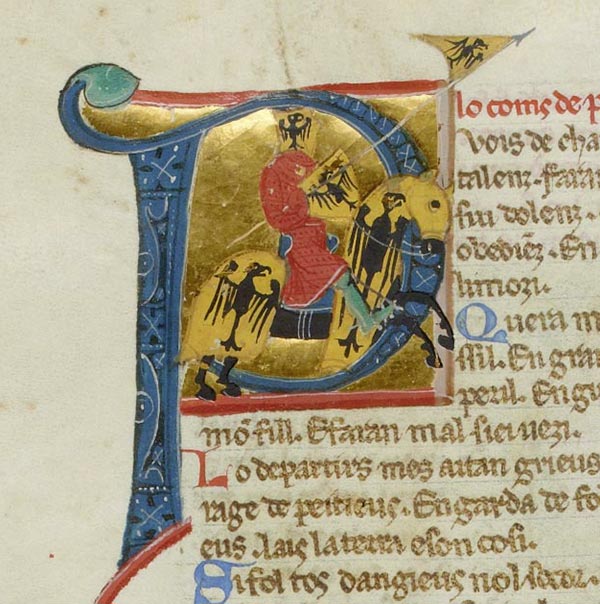 lo coms de p
P vois de cha
talenz. farai
sui dolenz.
obediẽz. En
limozi.
Quera m
ssil. En gran
peril. En gu
mõ fill. E faran mal siei uezi.
Lo departirs mes aitan grieus
rage de peitieus. En garda de fo
eus. lais la terra e son cosi.
Si fol cos dangieus nol socor.